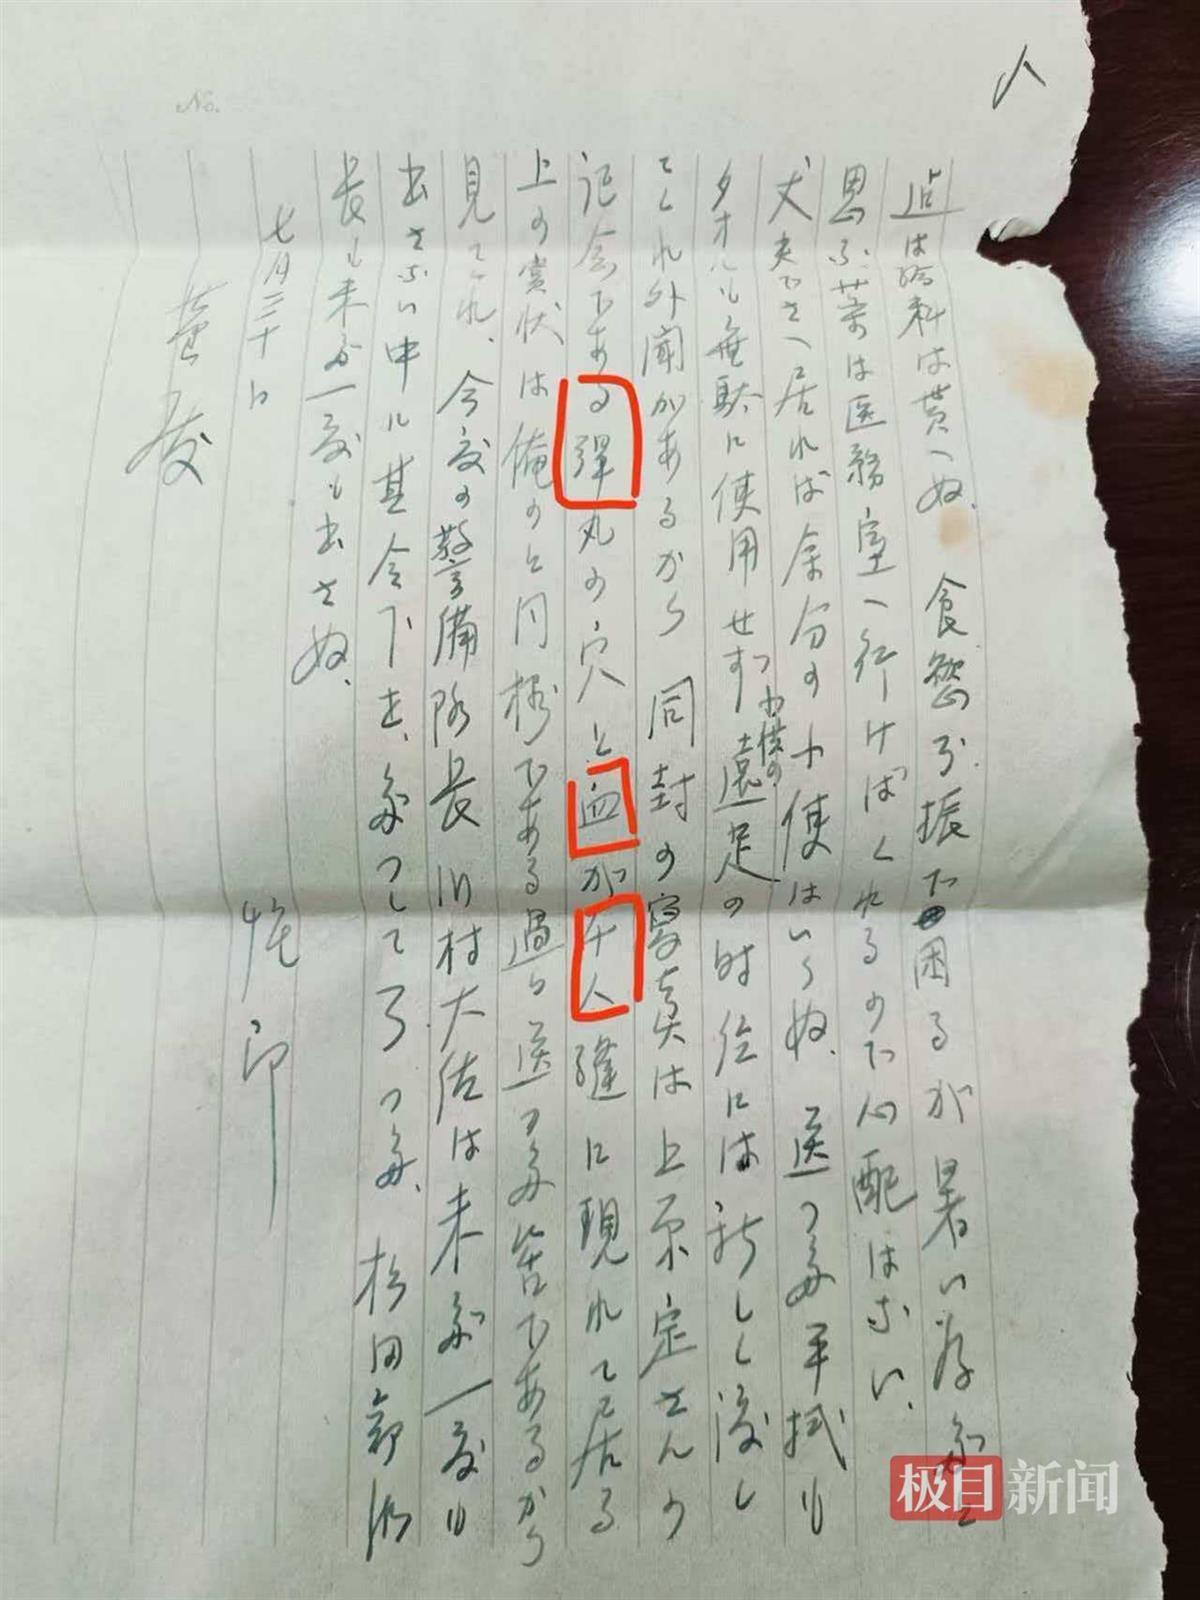 人
No.
は給料は貰へぬ、食慾不振で困るが暑い為だと
思ふ薬は医務室へ行けばくれるので心配はない、
丈夫でさへ居れば余分の小使はいらぬ、送つた手拭も
タオルも無駄に使用せずつ小供の遠足の時位には新しく渡し
てくれ外聞があるから 同封の写真は上原定さんの
記念である弾丸の穴と血が千人縫に現れて居る
上の賞状は俺のと同様である過日送つた筈であるから
見てくれ、今度の警備隊長川村大佐は未だ一度も
出さない中に其令下去だつしてつた、松田部隊
長も未だ一度も出さぬ、
七月三十日
極目新闻